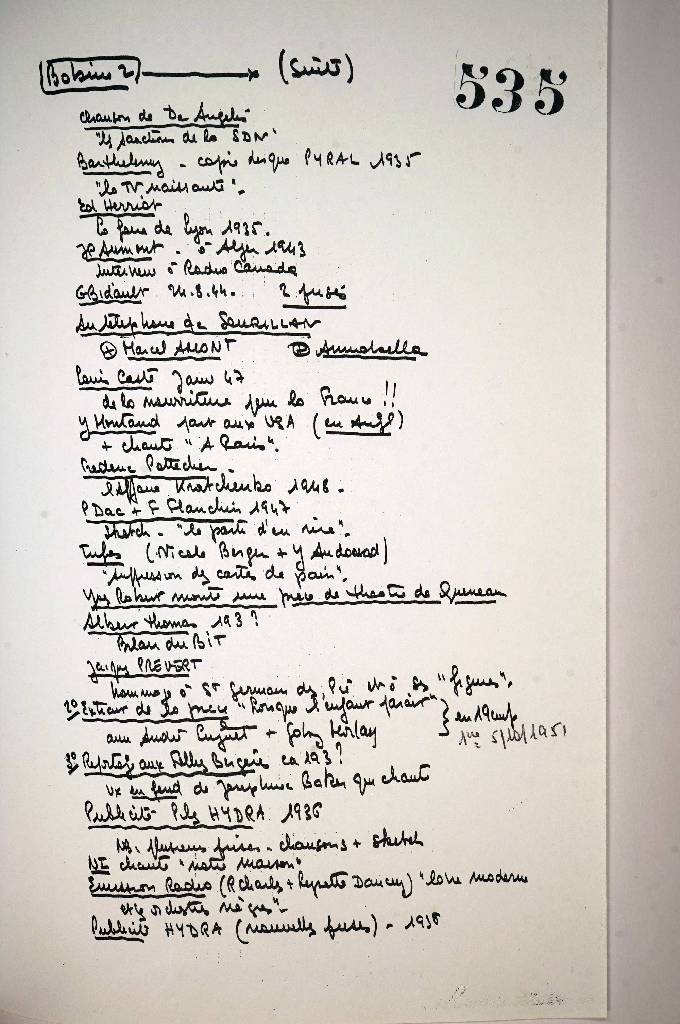 Bobine 2 → (Suite) 535
Chanson de De Angelis
"les sanctions de la SDN"
Barthelemy - copie disque PYRAL 1935
"la TV naissante".
Ed Herriot
la foire de Lyon 1935.
JP Aumont - à Alger 1943
interview à Radio Canada
G Bidault 24.8.44. 2 faces
Au telephone de SOURILLAN
+ Marcel AMONT + Annabella
Louis Casté Janv 47
de la nourriture pour la France !!
Y Montand part aux USA (en Angl)
+ chante "A Paris".
Frederic Pottecher -
l'affaire Kratchenko 1948 -
P Dac + F Blanchin 1947
sketch - "le parti d'en rire".
(Nicole Berger + Y
"suppression des cartes de pain".
Yves Robert monte une piece de theatre de Queneau
Albert Thomas 193?
Bilan du BIT
Jacques PREVERT
hommage à St Germain des Prés et à ses "figures".
2° Extrait de la piece "Lorsque l'enfant parait" } en 19
avec André Luguet + Gaby Morlay 1ère 5/10/1951
3° Reportage aux Folies Bergère ca 193?
ux en fond de Josephine Baker qui chante
Publicité Piles HYDRA 1936
NB. plusieurs prises - chansons + sketch
chante "notre maison"
Emission Radio (R Charles + Reynette Dancey) "love moderne
et les orchestres nègres".
Publicité HYDRA (nouvelles prises) - 1936